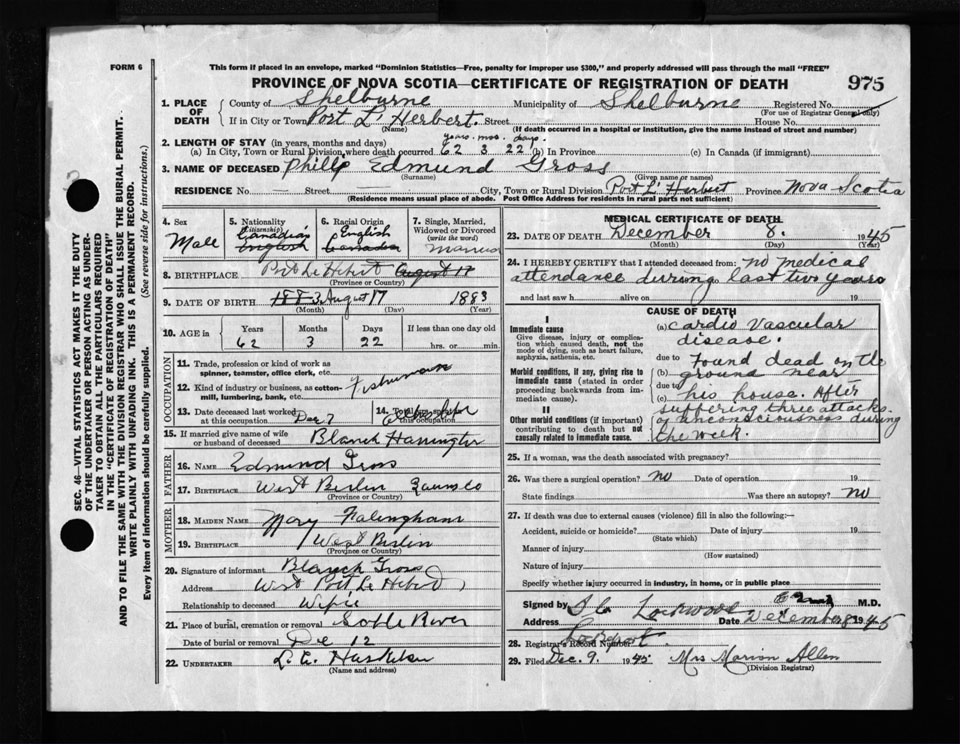 FORM 6
This form if placed in an envelope, marked "Dominion Statistics—Free, penalty for improper use $300," and properly addressed will pass through the mail "FREE"
PROVINCE OF NOVA SCOTIA—CERTIFICATE OF REGISTRATION OF DEATH
975
1. PLACE OF DEATH
County of Shelburne Municipality of Shelburne Registered No.
(For use of Registrar General only)
If in City or Town Port L' Herbert. Street House No.
(Name) (If death occurred in a hospital or institution, give the name instead of street and number)
2. LENGTH OF STAY (in years, months and days) years. mos. days.
(a) In City, Town or Rural Division where death occurred 62 3 22 (b) In Province (c) In Canada (if immigrant)
3. NAME OF DECEASED Philip Edmund Gross
(Surname) (Given name or names)
RESIDENCE No. — Street — City, Town or Rural Division Port L' Herbert Province Nova Scotia
(Residence means usual place of abode. Post Office Address for residents in rural parts not sufficient)
4. Sex
Male
5. Nationality (Citizenship)
Canadian
English
6. Racial Origin
English
Canadian
7. Single, Married, Widowed or Divorced (write the word)
Married
8. BIRTHPLACE Port Le Hebert August 17
(Province or Country)
9. DATE OF BIRTH 1883 August 17 1883
(Month) (Day) (Year)
10. AGE in Years Months Days If less than one day old
62 3 22 hrs. or min.
OCCUPATION
11. Trade, profession or kind of work as spinner, teamster, office clerk, etc. Fisherman
12. Kind of industry or business, as cotton-mill, lumbering, bank, etc.
13. Date deceased last worked at this occupation Dec 7
14. Total yrs.
15. If married give name of wife or husband of deceased Blanch Harrington
FATHER
16. NAME Edmund Gross
17. BIRTHPLACE West Berlin Queens Co
(Province or Country)
MOTHER
18. MAIDEN NAME Mary
19. BIRTHPLACE West Berlin
(Province or Country)
20. Signature of informant Blanch Gross
Address West Port Le Hebert
Relationship to deceased Wife
21. Place of burial, cremation or removal Sable River
Date of burial or removal De 12
22. UNDERTAKER L. E.
(Name and address)
MEDICAL CERTIFICATE OF DEATH
23. DATE OF DEATH December 8. 1945
(Month) (Day) (Year)
24. I HEREBY CERTIFY that I attended deceased from: no medical
attendance during last two years
and last saw h alive on 19
CAUSE OF DEATH
I
Immediate cause
Give disease, injury or complication which caused death, not the mode of dying, such as heart failure, asphyxia, asthenia, etc.
Morbid conditions, if any, giving rise to immediate cause (stated in order proceeding backwards from immediate cause).
II
Other morbid conditions (if important) contributing to death but not causally related to immediate cause.
(a) cardio vascular
disease.
due to
(b) Found dead on the
ground near
due to
(c) his house. After
suffering three attacks
of unconsciousness during
the week.
25. If a woman, was the death associated with pregnancy?
26. Was there a surgical operation? no Date of operation 19
State findings Was there an autopsy? no
27. If death was due to external causes (violence) fill in also the following:—
Accident, suicide or homicide? Date of injury 19
(State which)
Manner of injury
(How sustained)
Nature of injury
Specify whether injury occurred in industry, in home, or in public place
Signed by Lockwood M.D.
Address Lockeport Date December 8 1945
28. Registrar's Record Number
29. Filed Dec. 9 1945 Mrs Marion Allen
(Division Registrar)
SEC. 46—VITAL STATISTICS ACT MAKES IT THE DUTY
OF THE UNDERTAKER OR PERSON ACTING AS UNDERTAKER TO OBTAIN ALL THE PARTICULARS REQUIRED
IN THE "CERTIFICATE OF REGISTRATION OF DEATH"
AND TO FILE THE SAME WITH THE DIVISION REGISTRAR WHO SHALL ISSUE THE BURIAL PERMIT.
WRITE PLAINLY WITH UNFADING INK. THIS IS A PERMANENT RECORD.
Every item of information should be carefully supplied. (See reverse side for instructions.)